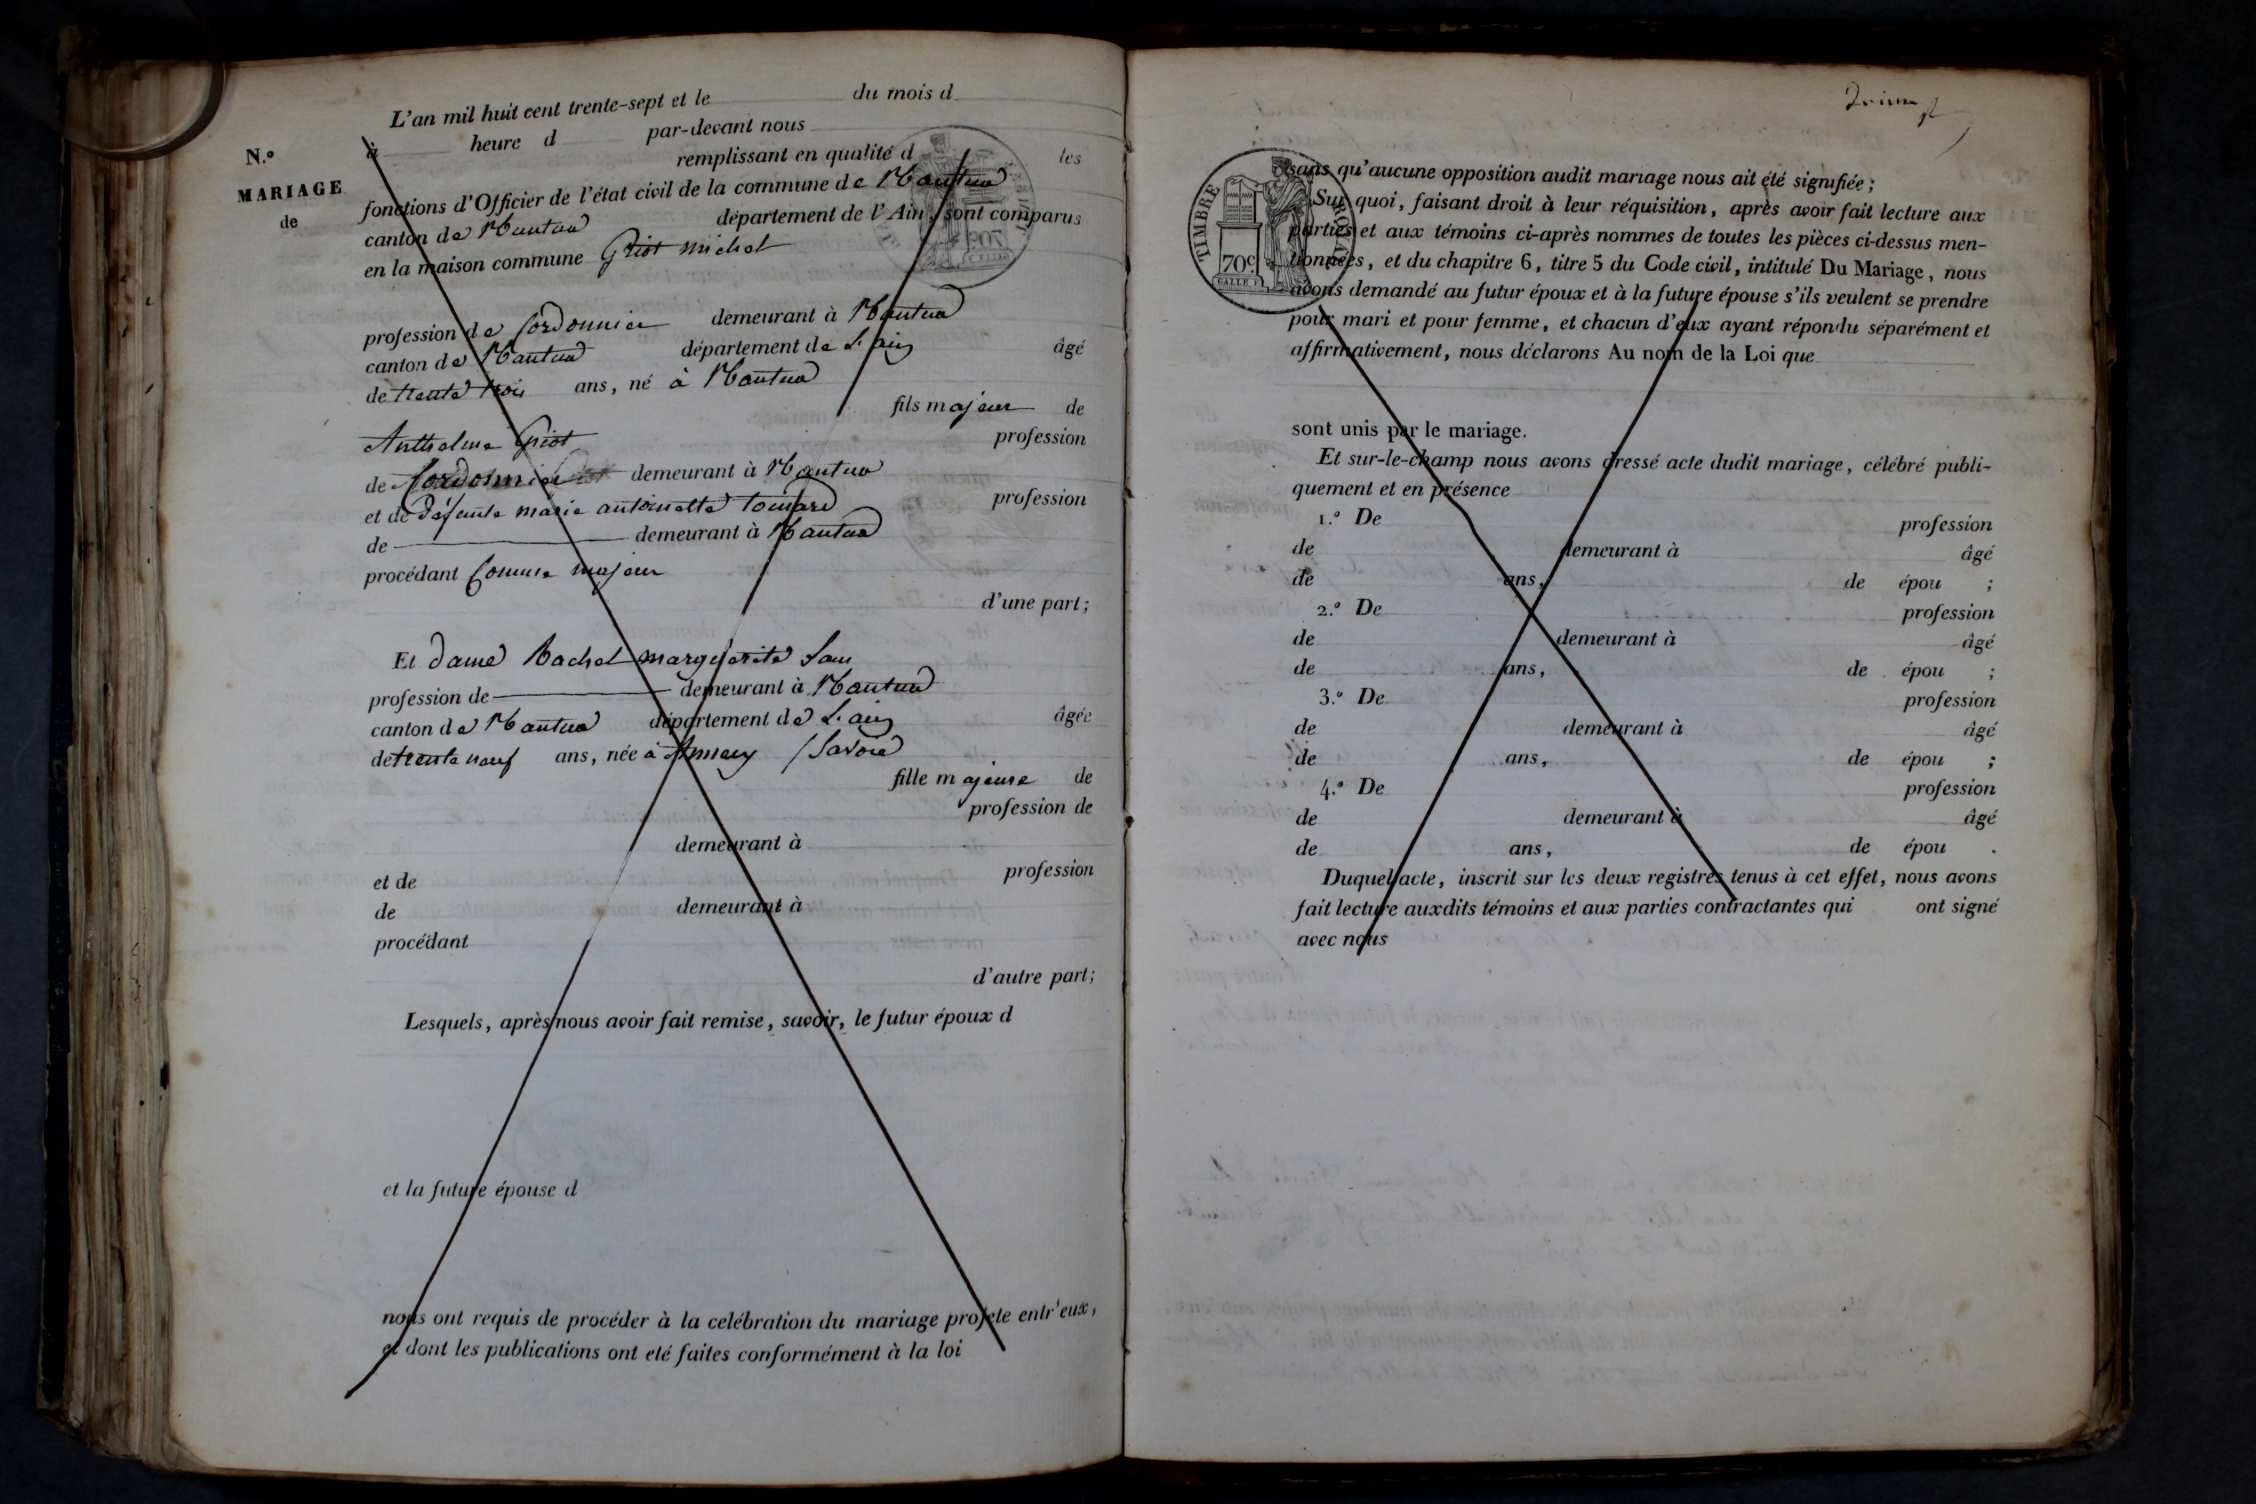 L'an mil huit cent trente-sept et le du mois d
N.° à heure d par-devant nous
remplissant en qualité d les
MARIAGE
de
fonctions d'Officier de l'état civil de la commune de Nantua
canton de Nantua département de l'Ain, sont comparus
en la maison commune Griot michel
profession de Cordonnier demeurant à Nantua
canton de Nantua département de L'ain âgé
de trente trois ans, né à Nantua
fils majeur de
Anthelme Griot profession
de Cordonnier demeurant à Nantua
et de défunte marie antoinette profession
de demeurant à Nantua
procédant Comme majeur
d'une part;
Et dame Rachel marguerite
profession de demeurant à Nantua
canton de Nantua département de L'ain âgée
de trente neuf ans, née à Annecy Savoie
fille majeure de
profession de
demeurant à
et de profession
de demeurant à
procédant
d'autre part;
Lesquels, après nous avoir fait remise, savoir, le futur époux d
et la future épouse d
nous ont requis de procéder à la celébration du mariage projete entr'eux,
et dont les publications ont eté faites conformément à la loi
TIMBRE ROYAL
70c
sans qu'aucune opposition audit mariage nous ait été signifiée;
Sur quoi, faisant droit à leur réquisition, après avoir fait lecture aux
parties et aux témoins ci-après nommes de toutes les pièces ci-dessus men-
tionnées, et du chapitre 6, titre 5 du Code civil, intitulé Du Mariage, nous
avons demandé au futur époux et à la future épouse s'ils veulent se prendre
pour mari et pour femme, et chacun d'eux ayant répondu séparément et
affirmativement, nous déclarons Au nom de la Loi que
sont unis par le mariage.
Et sur-le-champ nous avons dressé acte dudit mariage, célébré publi-
quement et en présence
1.° De profession
de demeurant à âgé
de ans, de épou ;
2.° De profession
de demeurant à âgé
de ans, de épou ;
3.° De profession
de demeurant à âgé
de ans, de épou ;
4.° De profession
de demeurant à âgé
de ans, de épou .
Duquel acte, inscrit sur les deux registres tenus à cet effet, nous avons
fait lecture auxdits témoins et aux parties contractantes qui ont signé
avec nous